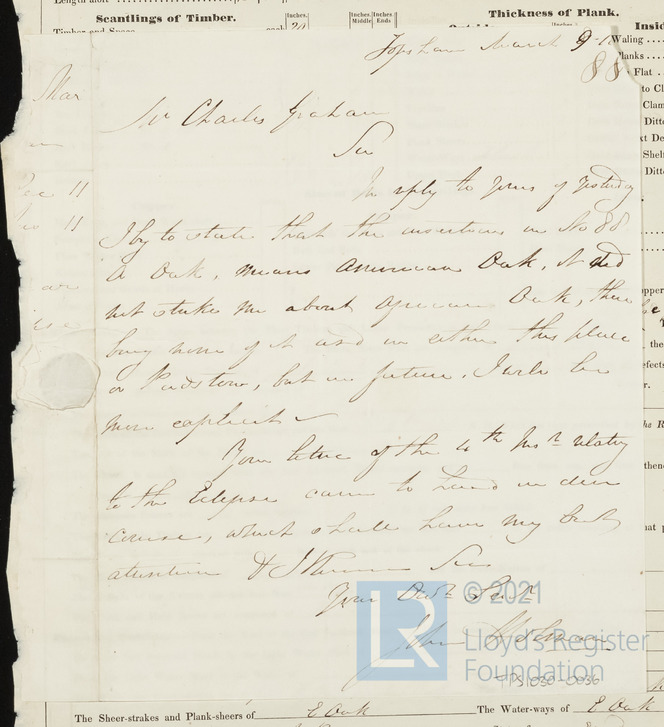 Scantlings of Timber.
Inches.
Inches Middle
Inches Ends
Thickness of Plank.
Timber and Space
Insid
Waling
Planks
Flat
to Cl
Clam
Ditt
xt De
Shel
Ditt
Topsham March 9
88
Mar
Mr Charles Graham
Sir
In reply to yours of yesterday
I beg to state that the insertions in No 88
A Oak, means American Oak, it did
not strike me about African Oak, there
being none of it used in either this place
or Padstow, but in future I will be
more explicit
11
11
Your letter of the 4th Inst relating
to the Eclipse came to hand in due
course, which shall have my best
attention & I Remain Sir
Your Obdt Servt
John
© 2021
LR
Lloyd's Register
Foundation
The Sheer-strakes and Plank-sheers of E Oak
The Water-ways of E Oak